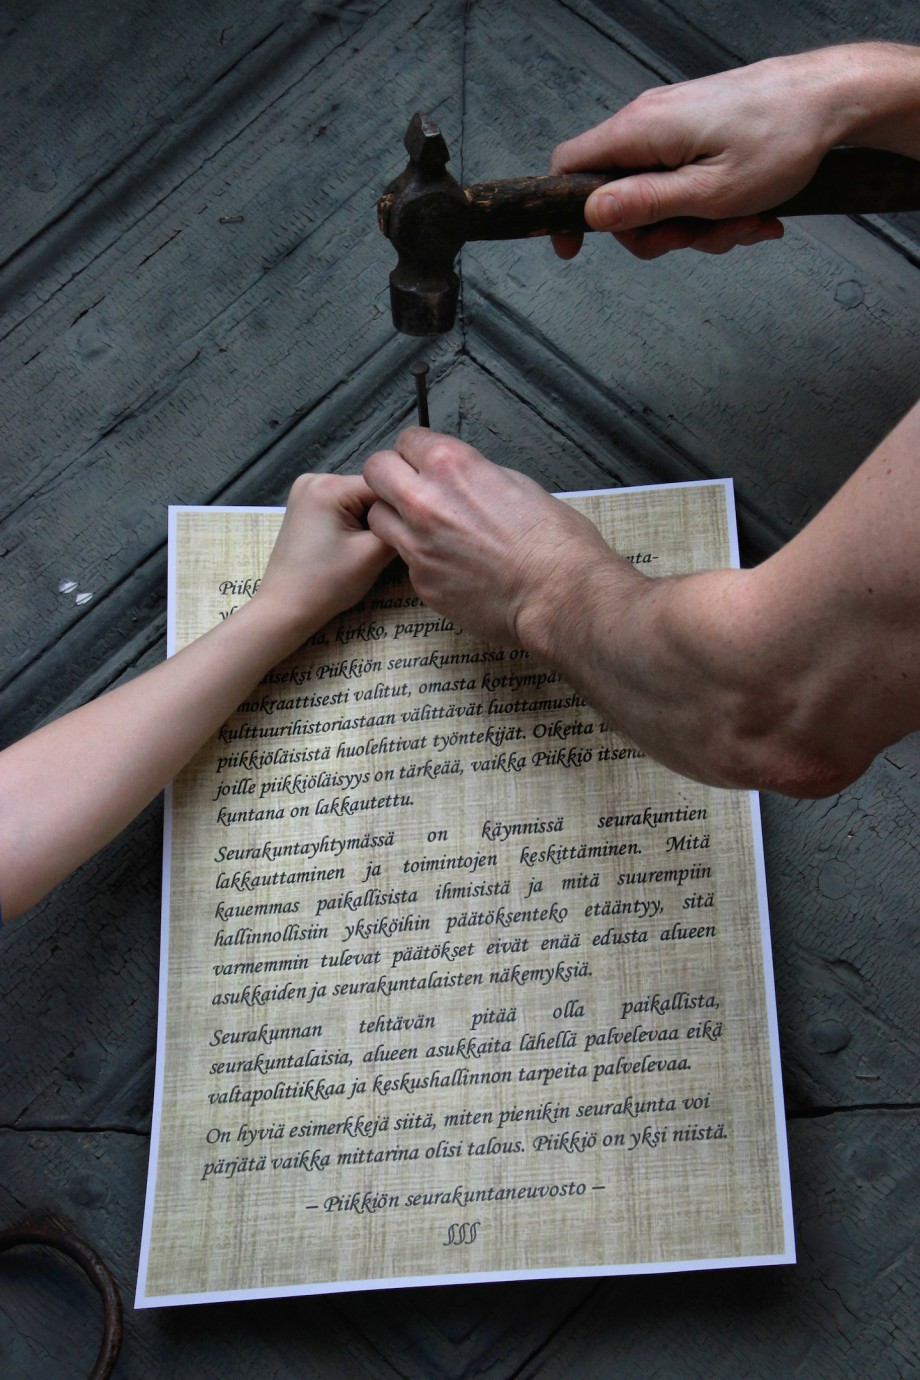 nta-
maaset
kirkko, pappila
Piikkiön seurakunnassa on
valitut, omasta
kulttuurihistoriastaan välittävät
piikkiöläisistä huolehtivat työntekijät. Oikeita
joille piikkiöläisyys on tärkeää, vaikka Piikkiö
kuntana on lakkautettu.
Seurakuntayhtymässä on käynnissä seurakuntien
lakkauttaminen ja toimintojen keskittäminen. Mitä
kauemmas paikallisista ihmisistä ja mitä suurempiin
hallinnollisiin yksiköihin päätöksenteko etääntyy, sitä
varmemmin tulevat päätökset eivät enää edusta alueen
asukkaiden ja seurakuntalaisten näkemyksiä.
Seurakunnan tehtävän pitää olla paikallista,
seurakuntalaisia, alueen asukkaita lähellä palvelevaa eikä
valtapolitiikkaa ja keskushallinnon tarpeita palvelevaa.
On hyviä esimerkkejä siitä, miten pienikin seurakunta voi
pärjätä vaikka mittarina olisi talous. Piikkiö on yksi niistä.
– Piikkiön seurakuntaneuvosto –